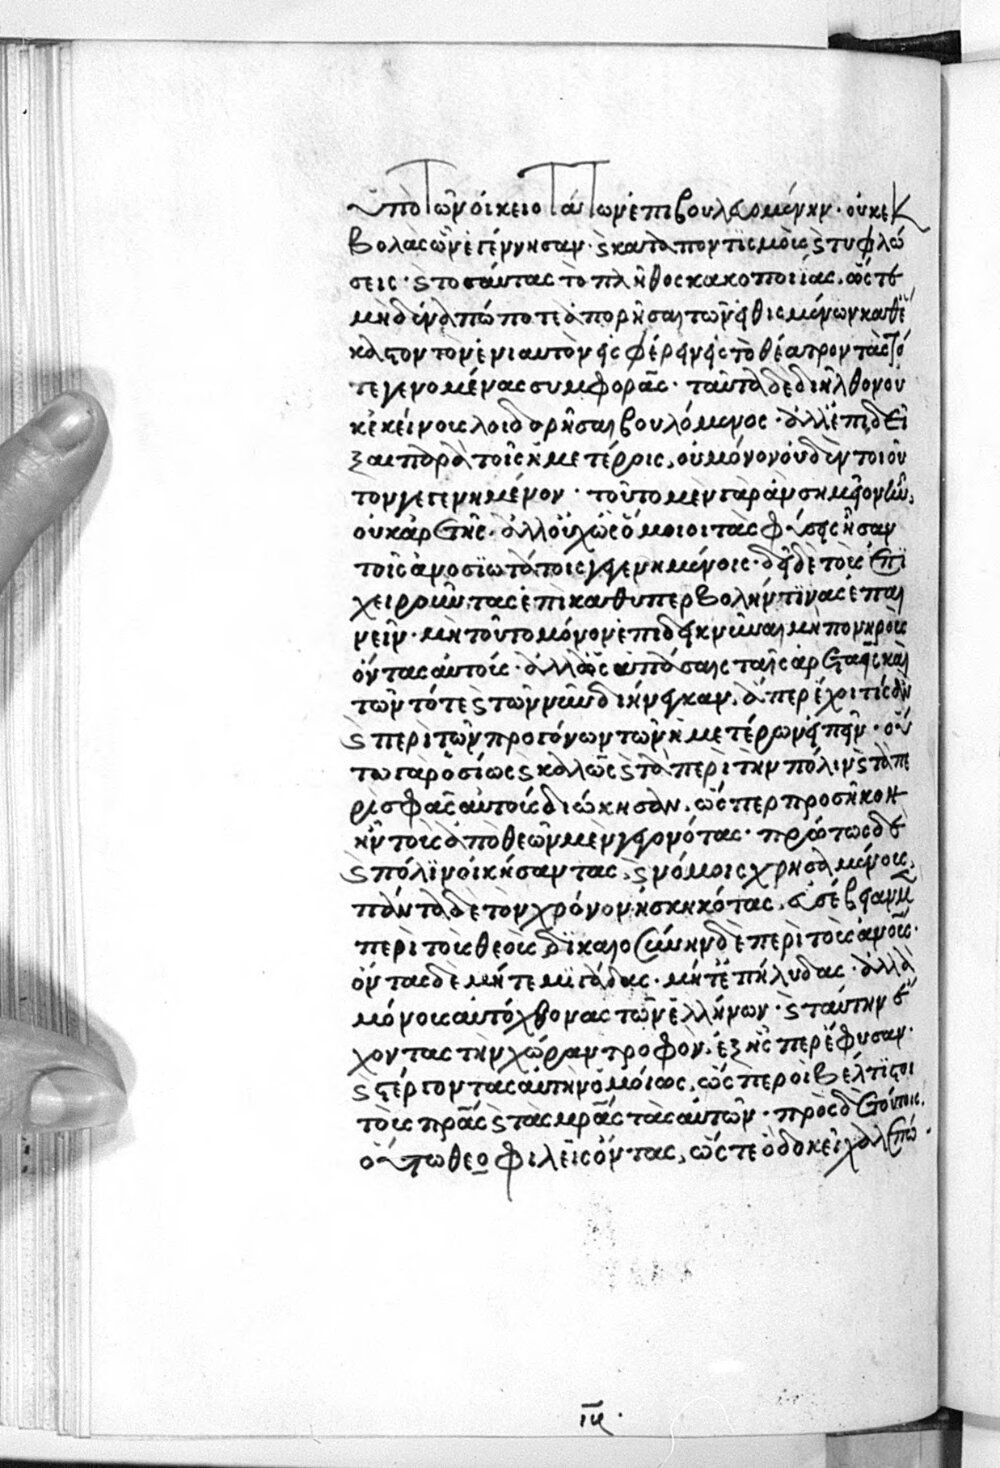 ὑπὸ τῶν οἰκειοτάτων ἐπιβουλευομένην· οὐκ ἐκ
βολὰς ὧν ἐγέννησαν· ϗ καταποντισμοὺς ϗ τυφλώ
σεις· ϗ τοσαύτας τὸ πλῆθος κακοποιΐας, ὥστε
μηδένα πώποτε ἀπορῆσαι τῶν εἰθισμένων καθ' ἕ
καστον τὸν ἐνιαυτὸν εἰσφέρειν εἰς τὸ θέατρον τὰς τό
τε γενομένας συμφοράς· ταῦτα δὲ διῆλθον οὐ
κ ἐκείνοις λοιδορῆσαι βουλόμενος· ἀλλ' ἐπιδεῖ
ξαι παρὰ τοῖς ἡμετέροις, οὐ μόνον οὐδὲν τοιοῦ
τον γεγενημένον· τοῦτο μὲν γὰρ ἂν σημεῖον ἦν,
οὐκ ἀρετῆς· ἀλλ' οὐχ ὡς ὅμοιοι τὰς φύσεις ἦσαν
τοῖς ἀνοσιωτάτοις γεγενημένοις· δεῖ δὲ τοὺς ἐπι
χειροῦντας ἐπὶ καθ' ὑπερβολήν τινας ἐπαι
νεῖν· μὴ τοῦτο μόνον ἐπιδεικνῦναι μὴ πονηροὺς
ὄντας αὐτούς· ἀλλ' ὡς ἁπάσαις ταῖς ἀρεταῖς καὶ
τῶν τότε ϗ τῶν νῦν διήνεγκαν, ἅπερ ἔχοι τις ἂν
ϗ περὶ τῶν προγόνων τῶν ἡμετέρων εἰπεῖν· οὕ
τω γὰρ ὁσίως ϗ καλῶς ϗ τὰ περὶ τὴν πόλιν ϗ τὰ πε
ρὶ σφᾶς αὐτοὺς διώκησαν, ὥσπερ προσῆκον
ἦν τοὺς ἀπὸ θεῶν μὲν γεγονότας· πρώτως δὲ
ϗ πόλιν οἰκήσαντας, ϗ νόμοις χρησαμένους,
πάντα δὲ τὸν χρόνον ἠσκηκότας, εὐσέβειαν μὲν
περὶ τοὺς θεοὺς, δικαιοσύνην δὲ περὶ τοὺς ἀνους·
ὄντας δὲ μήτε μιγάδας· μήτ' ἐπήλυδας· ἀλλὰ
μόνους αὐτόχθονας τῶν ἑλλήνων· ϗ ταύτην ἔ
χοντας τὴν χώραν τροφὸν, ἐξ ἧς περ ἔφυσαν·
ϗ στέργοντας αὐτὴν ὁμοίως, ὥσπερ οἱ βέλτιστοι
τοὺς πρας ϗ τὰς μρας τὰς αὑτῶν· πρὸς δὲ τούτοις,
οὕτω θεοφιλεῖς ὄντας, ὥστε ὃ δοκεῖ χαλεπώ
ιη·